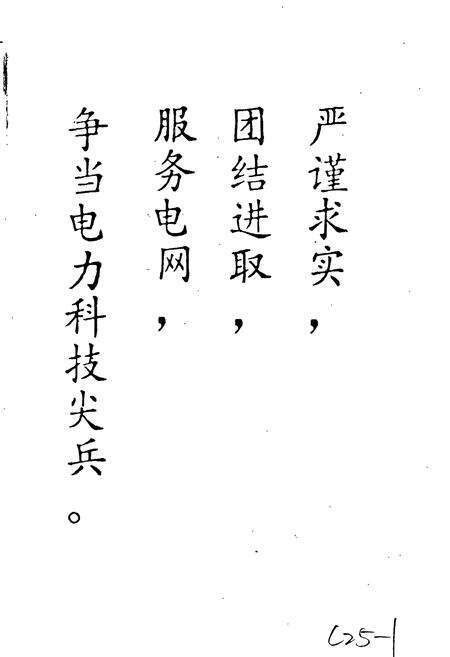 严谨求实，
团结进取，
服务电网，
争当电力科技尖兵。
C25-1